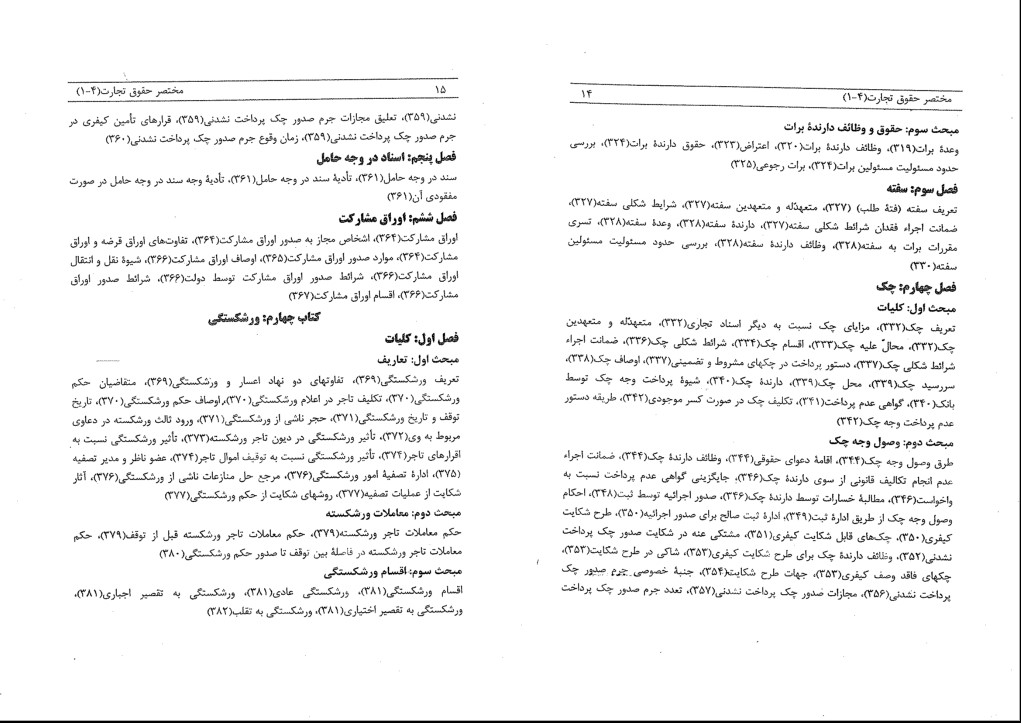 مختصر حقوق تجارت(۴-۱) ۱۴
مبحث سوم: حقوق و وظائف دارندهٔ برات
وعدهٔ برات(۳۱۹)، وظائف دارندهٔ برات(۳۲۰)، اعتراض(۳۲۳)، حقوق دارندهٔ برات(۳۲۴)، بررسی
حدود مسئولیت مسئولین برات(۳۲۴)، برات رجوعی(۳۲۵)
فصل سوم: سفته
تعریف سفته (فتهٔ طلب) (۳۲۷)، متعهدٌله و متعهدین سفته(۳۲۷)، شرایط شکلی سفته(۳۲۷)،
ضمانت اجراء فقدان شرائط شکلی سفته(۳۲۷)، دارندهٔ سفته(۳۲۸)، وعدهٔ سفته(۳۲۸)، تسری
مقررات برات به سفته(۳۲۸)، وظائف دارندهٔ سفته(۳۲۸)، بررسی حدود مسئولیت مسئولین
سفته(۳۳۰)
فصل چهارم: چک
مبحث اول: کلیات
تعریف چک(۳۳۲)، مزایای چک نسبت به دیگر اسناد تجاری(۳۳۲)، متعهدٌله و متعهدین
چک(۳۳۲)، محالٌ علیه چک(۳۳۳)، اقسام چک(۳۳۴)، شرائط شکلی چک(۳۳۶)، ضمانت اجراء
شرائط شکلی چک(۳۳۷)، دستور پرداخت در چکهای مشروط و تضمینی(۳۳۷)، اوصاف چک(۳۳۸)،
سررسید چک(۳۳۹)، محل چک(۳۳۹)، دارندهٔ چک(۳۴۰)، شیوهٔ پرداخت وجه چک توسط
بانک(۳۴۰)، گواهی عدم پرداخت(۳۴۱)، تکلیف چک در صورت کسر موجودی(۳۴۲)، طریقه دستور
عدم پرداخت وجه چک(۳۴۲)
مبحث دوم: وصول وجه چک
طرق وصول وجه چک(۳۴۴)، اقامهٔ دعوای حقوقی(۳۴۴)، وظائف دارندهٔ چک(۳۴۴)، ضمانت اجراء
عدم انجام تکالیف قانونی از سوی دارندهٔ چک(۳۴۶)، جایگزینی گواهی عدم پرداخت نسبت به
واخواست(۳۴۶)، مطالبهٔ خسارات توسط دارندهٔ چک(۳۴۶)، صدور اجرائیه توسط ثبت(۳۴۸)، احکام
وصول وجه چک از طریق ادارهٔ ثبت(۳۴۹)، ادارهٔ ثبت صالح برای صدور اجرائیه(۳۵۰)، طرح شکایت
کیفری(۳۵۰)، چک‌های قابل شکایت کیفری(۳۵۱)، مشتکی عنه در شکایت صدور چک پرداخت
نشدنی(۳۵۲)، وظائف دارندهٔ چک برای طرح شکایت کیفری(۳۵۳)، شاکی در طرح شکایت(۳۵۳)،
چکهای فاقد وصف کیفری(۳۵۳)، جهات طرح شکایت(۳۵۴)، جنبهٔ خصوصی جرم صدور چک
پرداخت نشدنی(۳۵۶)، مجازات صدور چک پرداخت نشدنی(۳۵۷)، تعدد جرم صدور چک پرداخت
۱۵ مختصر حقوق تجارت(۴-۱)
نشدنی(۳۵۹)، تعلیق مجازات جرم صدور چک پرداخت نشدنی(۳۵۹)، قرارهای تأمین کیفری در
جرم صدور چک پرداخت نشدنی(۳۵۹)، زمان وقوع جرم صدور چک پرداخت نشدنی(۳۶۰)
فصل پنجم: اسناد در وجه حامل
سند در وجه حامل(۳۶۱)، تأدیهٔ سند در وجه حامل(۳۶۱)، تأدیهٔ وجه سند در وجه حامل در صورت
مفقودی آن(۳۶۱)
فصل ششم: اوراق مشارکت
اوراق مشارکت(۳۶۴)، اشخاص مجاز به صدور اوراق مشارکت(۳۶۴)، تفاوت‌های اوراق قرضه و اوراق
مشارکت(۳۶۴)، موارد صدور اوراق مشارکت(۳۶۵)، اوصاف اوراق مشارکت(۳۶۶)، شیوهٔ نقل و انتقال
اوراق مشارکت(۳۶۶)، شرائط صدور اوراق مشارکت توسط دولت(۳۶۶)، شرائط صدور اوراق
مشارکت(۳۶۶)، اقسام اوراق مشارکت(۳۶۷)
کتاب چهارم: ورشکستگی
فصل اول: کلیات
مبحث اول: تعاریف
تعریف ورشکستگی(۳۶۹)، تفاوتهای دو نهاد اعسار و ورشکستگی(۳۶۹)، متقاضیان حکم
ورشکستگی(۳۷۰)، تکلیف تاجر در اعلام ورشکستگی(۳۷۰)، اوصاف حکم ورشکستگی(۳۷۰)، تاریخ
توقف و تاریخ ورشکستگی(۳۷۱)، حجر ناشی از ورشکستگی(۳۷۱)، ورود ثالث ورشکسته در دعاوی
مربوط به وی(۳۷۲)، تأثیر ورشکستگی در دیون تاجر ورشکسته(۳۷۳)، تأثیر ورشکستگی نسبت به
اقرارهای تاجر(۳۷۴)، تأثیر ورشکستگی نسبت به توقیف اموال تاجر(۳۷۴)، عضو ناظر و مدیر تصفیه
(۳۷۵)، ادارهٔ تصفیهٔ امور ورشکستگی(۳۷۶)، مرجع حل منازعات ناشی از ورشکستگی(۳۷۶)، آثار
شکایت از عملیات تصفیه(۳۷۷)، روشهای شکایت از حکم ورشکستگی(۳۷۷)
مبحث دوم: معاملات ورشکسته
حکم معاملات تاجر ورشکسته(۳۷۹)، حکم معاملات تاجر ورشکسته قبل از توقف(۳۷۹)، حکم
معاملات تاجر ورشکسته در فاصلهٔ بین توقف تا صدور حکم ورشکستگی(۳۸۰)
مبحث سوم: اقسام ورشکستگی
اقسام ورشکستگی(۳۸۱)، ورشکستگی عادی(۳۸۱)، ورشکستگی به تقصیر اجباری(۳۸۱)،
ورشکستگی به تقصیر اختیاری(۳۸۱)، ورشکستگی به تقلب(۳۸۲)